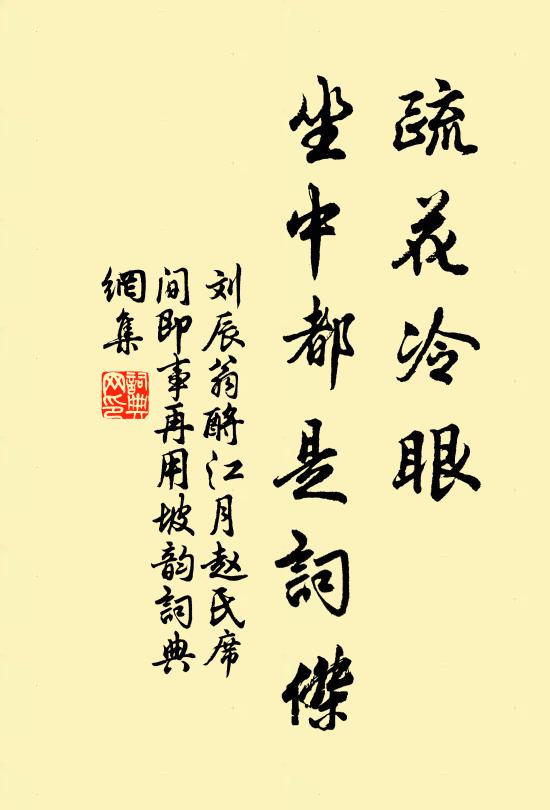 疏花冷眼
坐中都是詞傑
刘辰翁酹江月赵氏席
间即事再用坡韵詞典
網集
詞典
网印